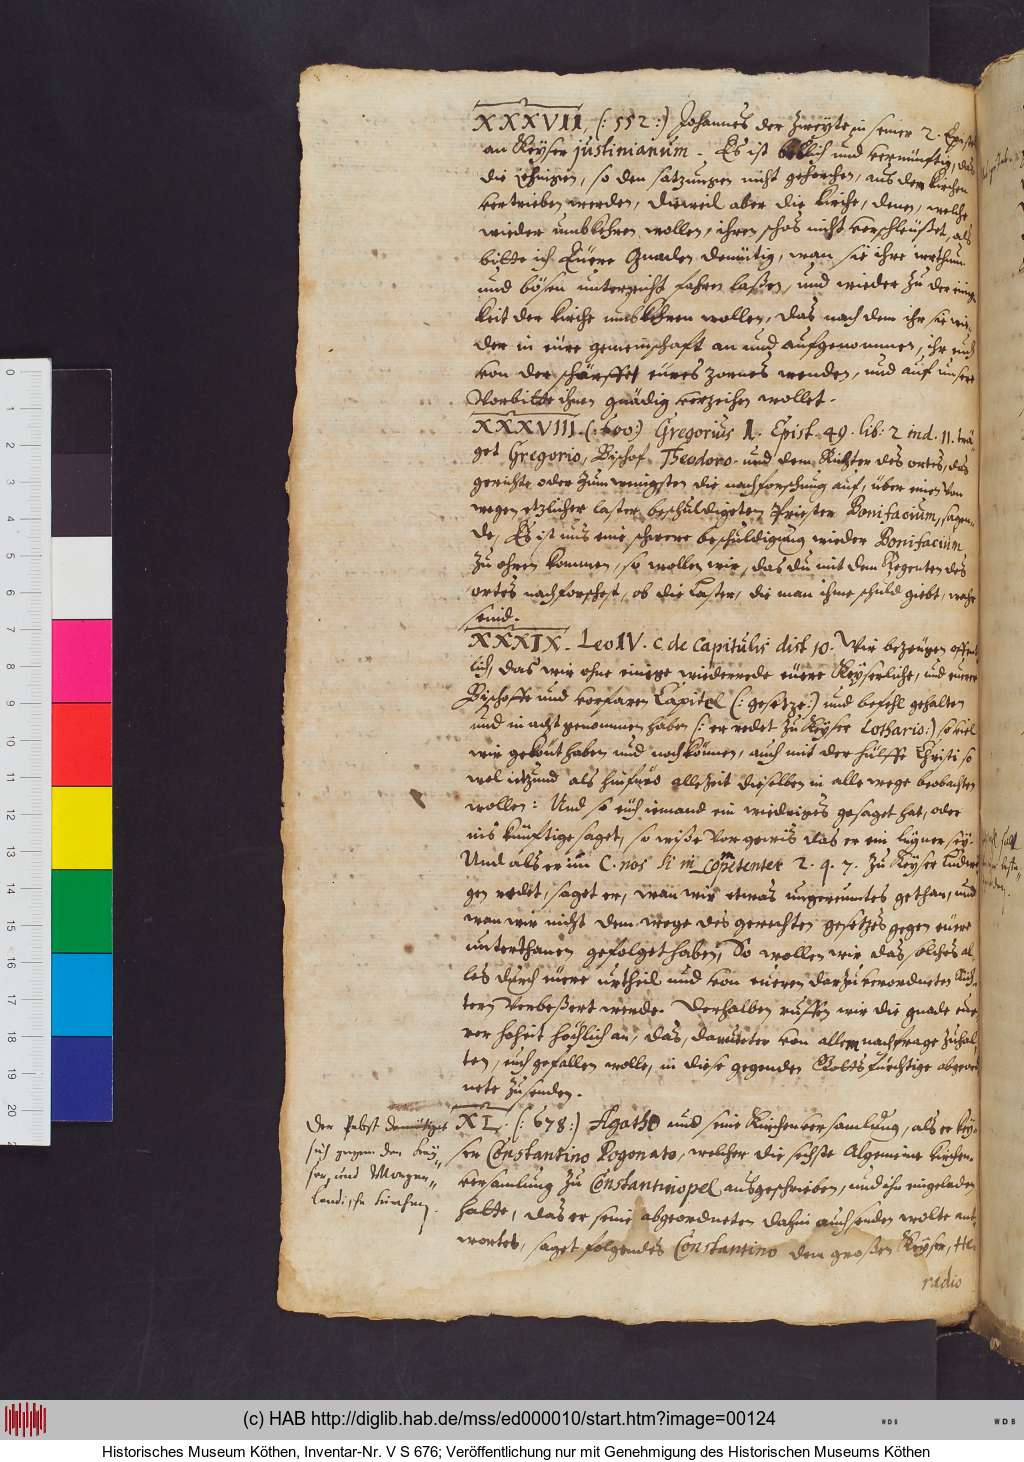 XXXVII, (: 552 :) Johannes der Zweyte in seiner 2. Epistel
an Keyser justinianum. Es ist billich und vernünftig, das
die ienigen, so den satzungen nicht gehorchen, aus der kirchen
vertrieben werden, dieweil aber die kirche, denen, welche
wieder umbkehren wollen, ihren schos nicht verschleüßet, als
bitte ich Euere Gnaden demütig, wan sie ihre irrthum
und bösen unterricht fahren laßen, und wieder zu der einig
keit der kirche umbkehren wollen, das nach dem ihr sie wie
der in eüre gemeinschaft an und aufgenommen, ihr euch
von der schärffe eures zornes wenden, und auf unsere
Vorbitte ihnen gnädig verzeihen wollet.
XXXVIII. (: 600 :) Gregorius I. Epist. 49. lib. 2 ind. 11. trä
get Gregorio, Bischof Theodoro und dem Richter des ortes, das
gerichte oder zum wenigsten die nachforschung auf, über einen von
wegen etzlicher laster beschuldigeten Priester Bonifacium, sagen
de, Es ist uns eine schwere beschuldigung wieder Bonifacium
zu ohren kommen, so wollen wir, das du mit dem Regenten des
ortes nachforschest, ob die Laster, die man ihme schuld giebt, wahr
seind.
XXXIX. Leo IV. c. de Capitulis dist. 10. Wir bezeugen offent
lich, das wir ohne einige wiederrede euere Keyserliche, und eurer
Bischoffe und vorfaren Capitel (: gesetze :) und befehl gehalten
und in acht genommen haben (: er redet zu Keyser Lothario :) so viel
wir gekönt haben und noch können, auch mit der hülffe Christi so
wol ietzund als hinfüro allezeit dieselben in alle wege beobachten
wollen: Und so euch iemand ein wiedriges gesaget hat, oder
ins künftige saget, so wißet vor gewis das er ein lügner sey.
Und als er im C. nos si in competenter 2. q. 7. zu Keyser Ludwi
gen redet, saget er, wan wir etwas ungereumtes gethan, und
wan wir nicht dem wege des gerechten gesetzes gegen eüere
unterthanen gefolget haben, So wollen wir das solches al
les durch euere urtheil und von eueren darzu verordneten Rich
tern verbeßert werde. Derhalben ruffen wir die gnade eue
rer hoheit höchlich an, das, darunter von allem nachfrage zuhal
ten, euch gefallen wolle, in diese gegenden Gottsfürchtige abgeord
nete zusenden.
Der Pabst demütiget
sich gegen den Key
ser, und Morgen
lendische kirchen.
XL. (: 678 :) Agatho und seine Kirchenversamlung, als er Key
ser Constantino Pogonato, welcher die sechste Algemeine kirchen
versamlung zu Constantinopel ausgeschrieben, und ihn eingeladen
hatte, das er seine abgeordneten dahin auch senden wolte ant
wortet, saget folgendes Constantino dem großen Keyser, He
radio
(c) HAB http://diglib.hab.de/mss/ed000010/start.htm?image=00124
Historisches Museum Köthen, Inventar-Nr. V S 676; Veröffentlichung nur mit Genehmigung des Historischen Museums Köthen